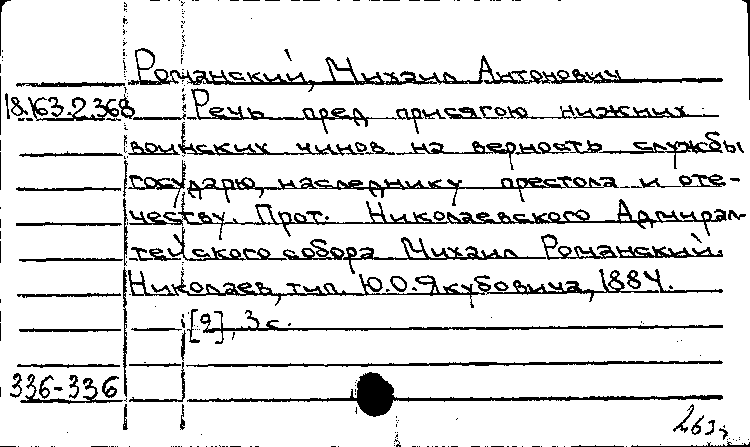 Романский, Михаил Антонович
18.163.2.368 Речь пред присягою нижних
воинских чинов на верность службы
государю, наследнику престола и оте-
честву. Прот. Николаевского Адмирал-
тейского собора Михаил Романский.
Николаев, тип. Ю.О.Якубовича, 1884.
[2], 3 с.
336-336
263